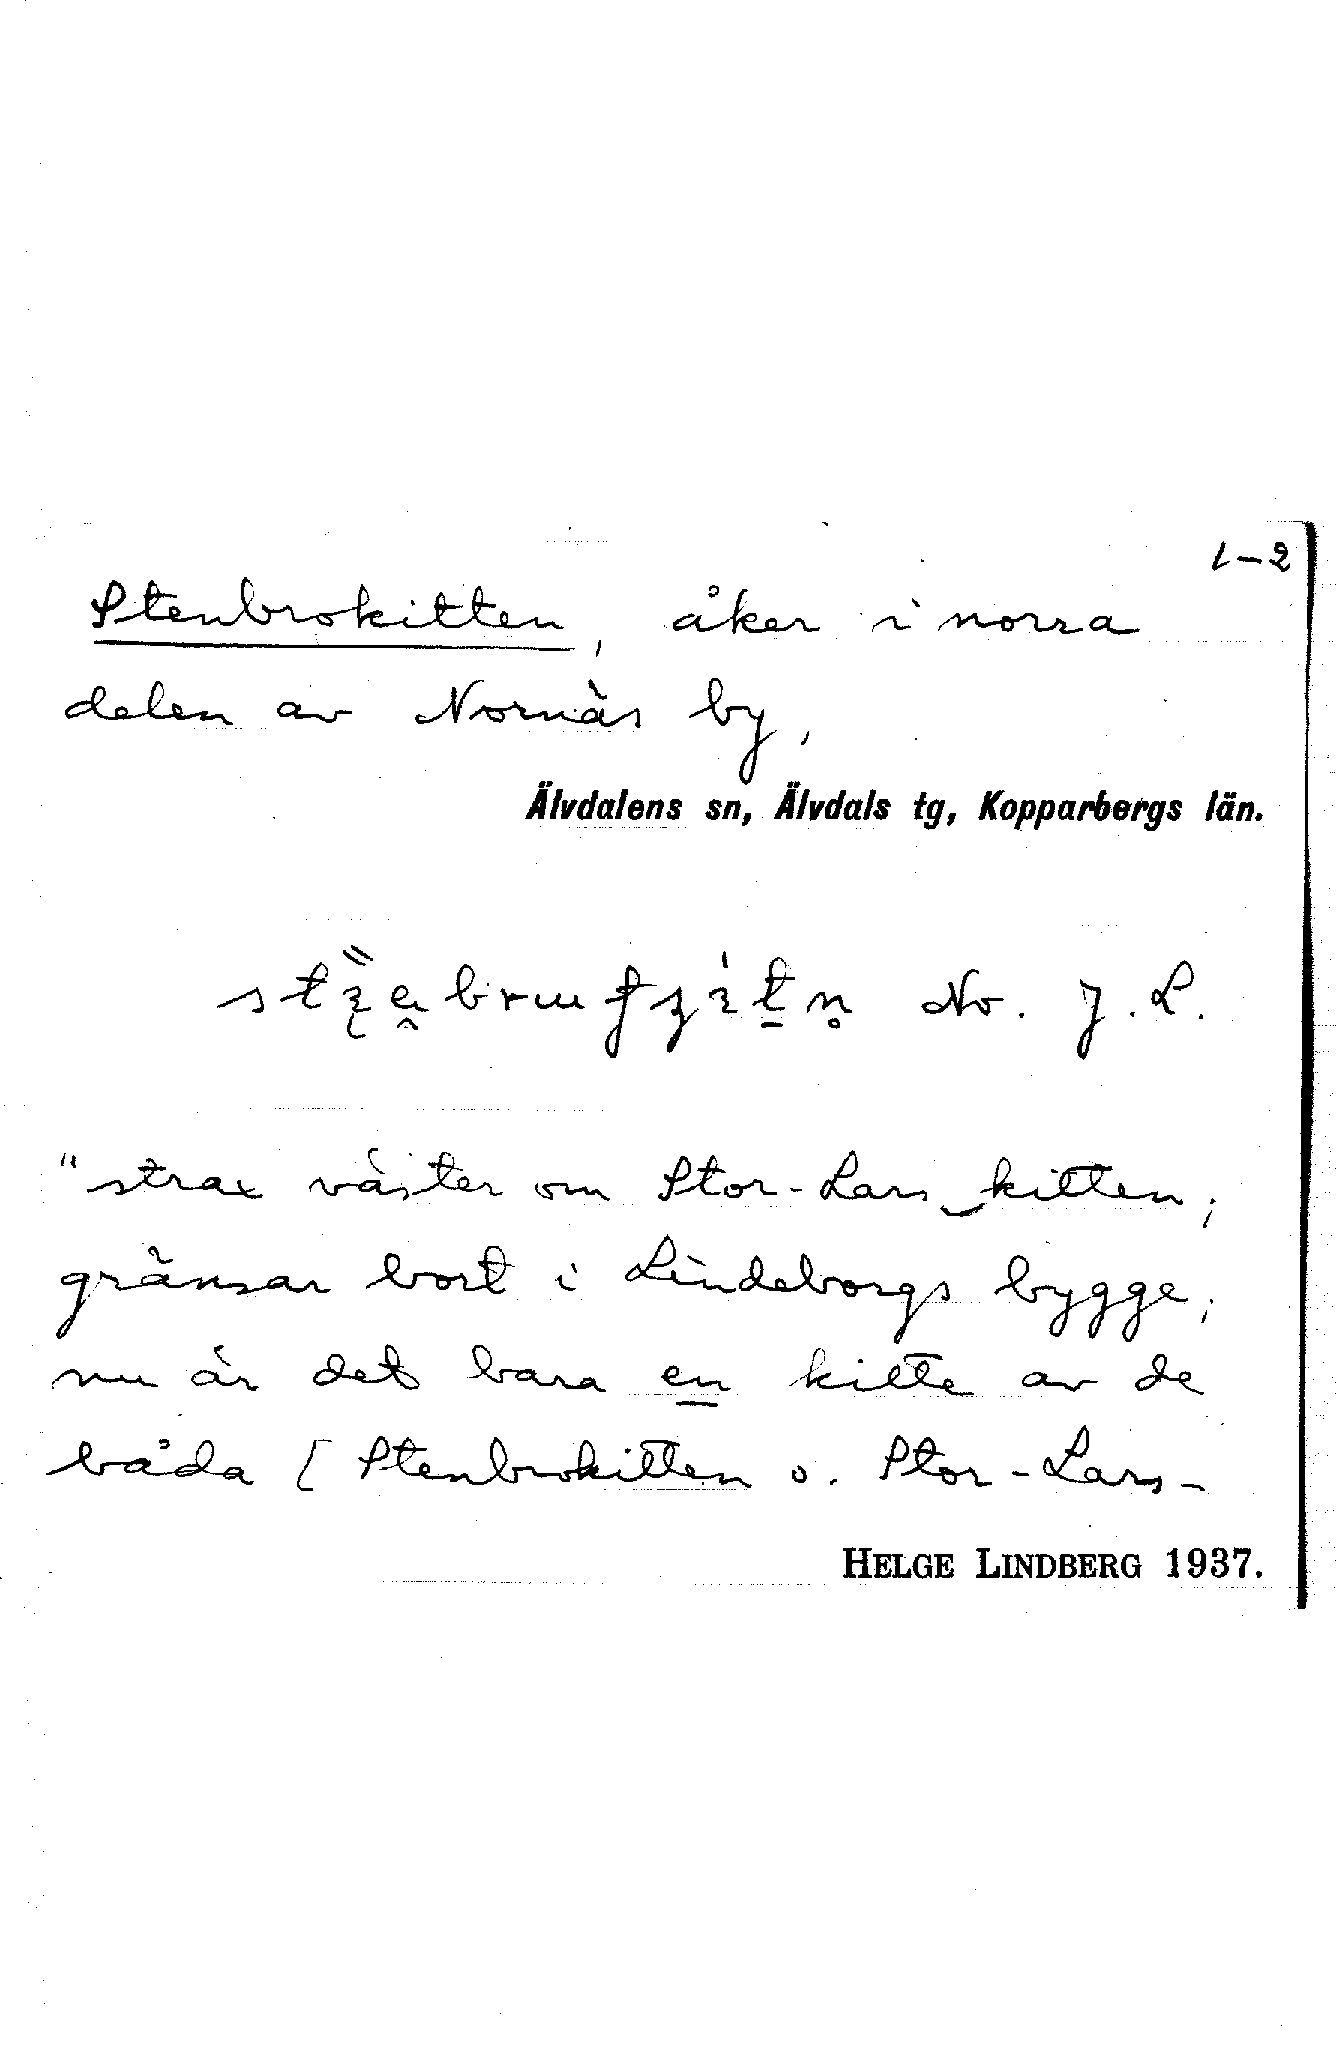 1–2
Stenbrokitten, åker i norra
delen av Nornäs by,
Älvdalens sn, Älvdals tg, Kopparbergs län.
No. J. L.
"strax väster om Stor-Lars kitten;
gränsar bort i Lindeborgs bygge;
nu är det bara en kitte av de
båda [Stenbrokitten o. Stor-Lars-
HELGE LINDBERG 1937.